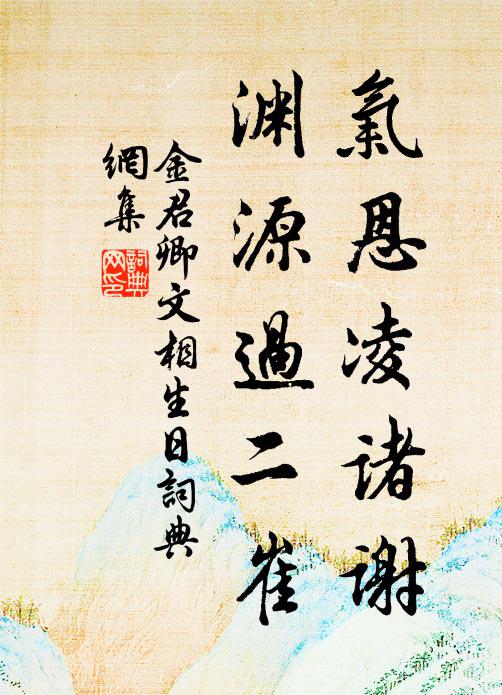 氣恩凌诸谢
渊源過二崔
金君卿文相生日詞典
網集
詞典
网印